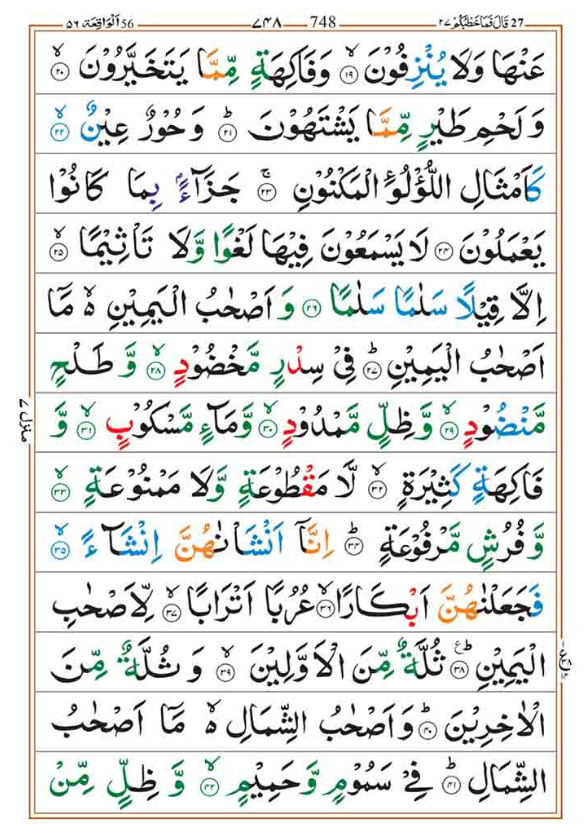 27 قَالَ فَمَا خَطْبُكُمْ ٢٧ 748 ٧٤٨ 56 اَلْوَاقِعَة ٥٦
عَنْهَا وَلَا يُنْزِفُوْنَ ۙ‏ ۱۹ وَفَاكِهَةٍ مِّمَّا يَتَخَيَّرُوْنَ ۙ‏ ۲۰
وَلَحْمِ طَيْرٍ مِّمَّا يَشْتَهُوْنَ ؕ‏ ۲۱ وَحُوْرٌ عِيْنٌ ۙ‏ ۲۲
كَاَمْثَالِ اللُّؤْلُوٴِ الْمَكْنُوْنِ‌ۚ‏ ۲۳ جَزَآءًۢ بِمَا كَانُوْا
يَعْمَلُوْنَ‏ ۲۴ لَا يَسْمَعُوْنَ فِيْهَا لَغْوًا وَّلَا تَاْثِيْمًا ۙ‏ ۲۵
اِلَّا قِيْلًا سَلٰمًا سَلٰمًا‏ ۲۶ وَاَصْحٰبُ الْيَمِيْنِ ۙ مَاۤ
اَصْحٰبُ الْيَمِيْنِؕ‏ ۲۷ فِىْ سِدْرٍ مَّخْضُوْدٍۙ‏ ۲۸ وَّطَلْحٍ
مَّنْضُوْدٍۙ‏ ۲۹ وَّظِلٍّ مَّمْدُوْدٍۙ‏ ۳۰ وَّمَآءٍ مَّسْكُوْبٍۙ‏ ۳۱ وَّ
فَاكِهَةٍ كَثِيْرَةٍۙ‏ ۳۲ لَّا مَقْطُوْعَةٍ وَّلَا مَمْنُوْعَةٍۙ‏ ۳۳
وَّ فُرُشٍ مَّرْفُوْعَةٍؕ‏ ۳۴ اِنَّاۤ اَنْشَاْنٰهُنَّ اِنْشَآءًۙ‏ ۳۵
فَجَعَلْنٰهُنَّ اَبْكَارًاۙ‏ ۳۶ عُرُبًا اَتْرَابًاۙ‏ ۳۷ لِّاَصْحٰبِ
الْيَمِيْنِؕ‏ ۳۸ ثُلَّةٌ مِّنَ الْاَوَّلِيْنَۙ‏ ۳۹ وَثُلَّةٌ مِّنَ
الْاٰخِرِيْنَؕ‏ ۴۰ وَاَصْحٰبُ الشِّمَالِ ۙ مَاۤ اَصْحٰبُ
الشِّمَالِؕ‏ ۴۱ فِىْ سَمُوْمٍ وَّحَمِيْمٍۙ‏ ۴۲ وَّظِلٍّ مِّنْ
منزل ٧